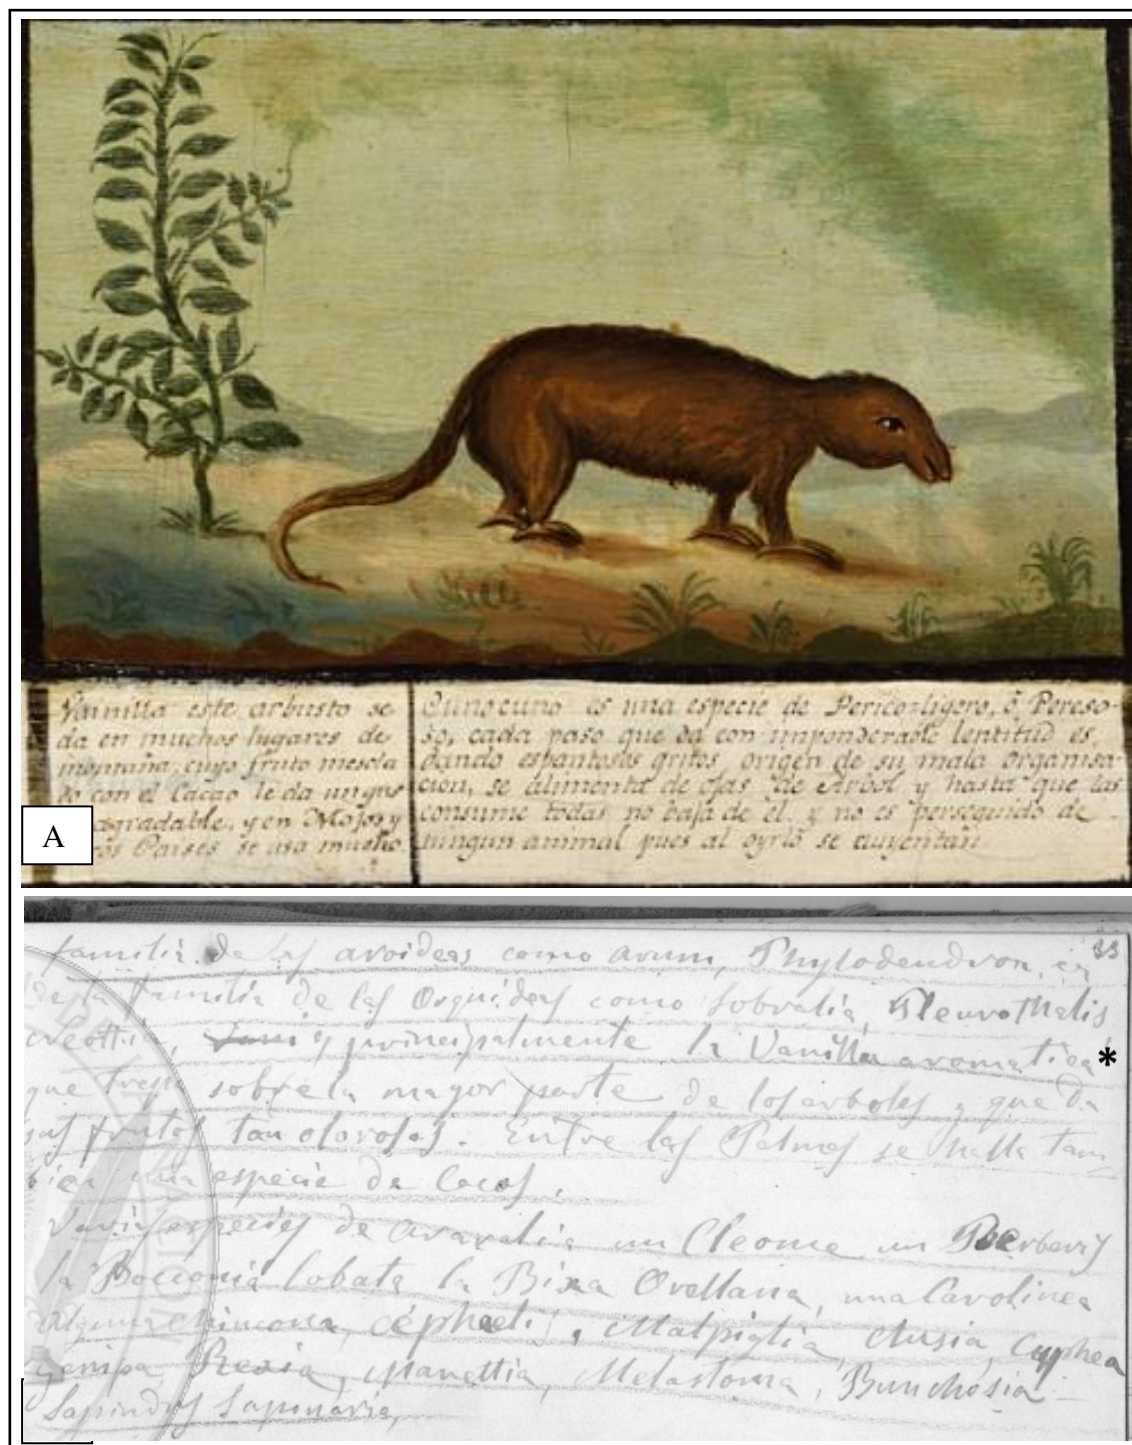 Vainilla este arbusto se
da en muchos lugares de
montaña, cuyo fruto mescla
do con el Cacao le da un gus
agradable, y en Mojos y
Paises se usa mucho
Cunacuno es una especie de Perico-ligero, ó Pereso-
so, cada paso que da con imponderable lentitud es
dando espantosos gritos, origen de su mala organisa-
cion, se alimenta de ojas de Arbol y hasta que las
consume todas no baja de él. y no es perseguido de
ningun animal pues al oyrlo se auyentan
A
33
familia de las aroideas como arum, Phylodendron,
de la familia de las Orquideas como Sobralia, Pleurothalis
y principalmente la Vanilla aromatica *
que trepa sobre la mayor parte de los arboles y que da
sus frutos tan olorosos. Entre las Palmas se halla tam
bien una especie de Cocos,
Varias especies de un Cleome un Berberis
la Bocconia lobata la Bixa Orellana, una Carolinea
Alguna cephaelis, Malpighia, Clusia, Cuphea
Genipa, Rexia, Manettia, Melastoma, Bunchosia
Sapindus Saponaria,